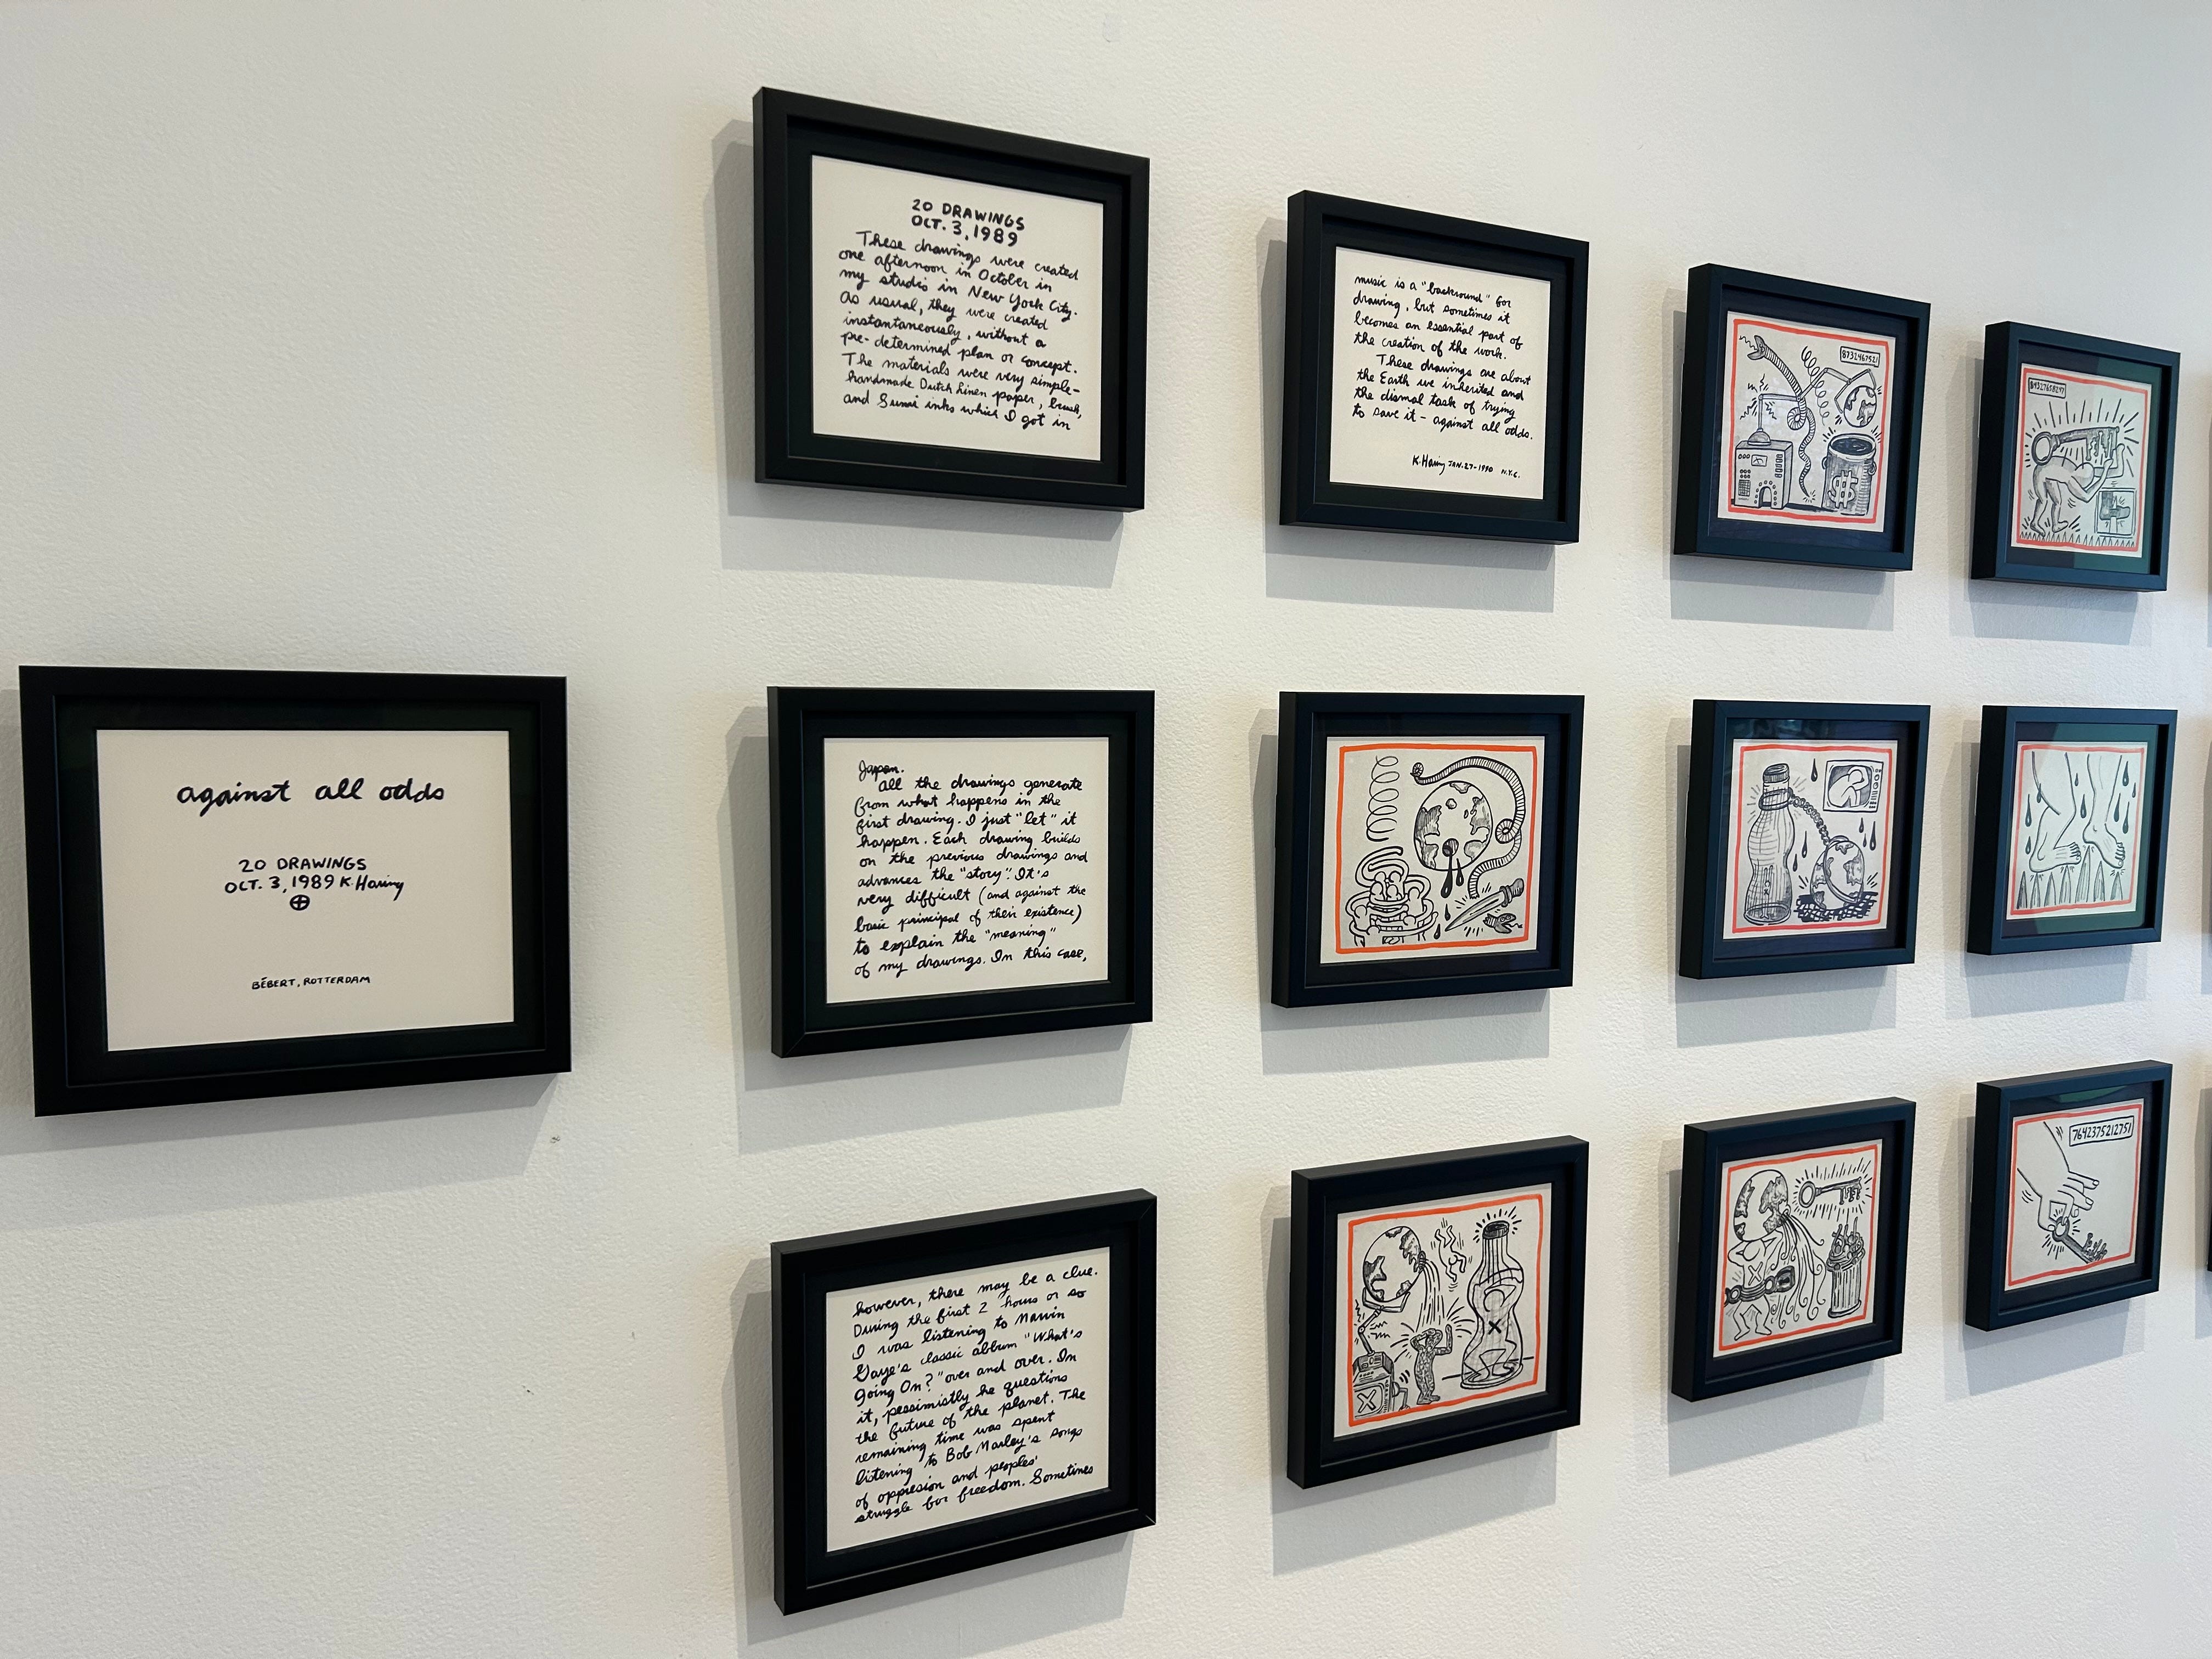 against all odds
20 DRAWINGS
OCT. 3, 1989 K. Haring
BÉBERT, ROTTERDAM
20 DRAWINGS
OCT. 3, 1989
These drawings were created
one afternoon in October in
my studio in New York City.
As usual, they were created
instantaneously, without a
pre-determined plan or concept.
The materials were very simple-
handmade Dutch linen paper, brush,
and Sumi inks which I got in
Japan.
All the drawings generate
from what happens in the
first drawing. I just "let" it
happen. Each drawing builds
on the previous drawings and
advances the "story". It's
very difficult (and against the
basic principal of their existence)
to explain the "meaning"
of my drawings. In this case,
however, there may be a clue.
During the first 2 hours or so
I was listening to Marvin
Gaye's classic album "What's
Going On?" over and over. In
it, pessimistly he questions
the future of the planet. The
remaining time was spent
listening to Bob Marley's songs
of oppresion and peoples'
struggle for freedom. Sometimes
music is a "backround" for
drawing, but sometimes it
becomes an essential part of
the creation of the work.
These drawings are about
the Earth we inherited and
the dismal task of trying
to save it - against all odds.
K. Haring JAN. 27-1990 N.Y.C.
8732467521
84327658297
7642375212751